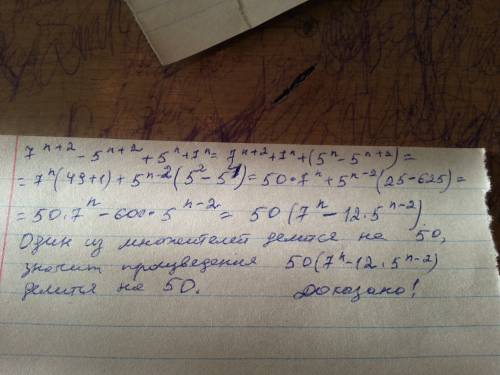 7^{n+2} - 5^{n+2} + 5^n + 7^n = 7^{n+2} + 7^n + (5^n - 5^{n+2}) =
= 7^n(49+1) + 5^{n-2}(5^2 - 5^4) = 50·7^n + 5^{n-2}(25-625) =
= 50·7^n - 600·5^{n-2} = 50(7^n - 12·5^{n-2}).
Один из множителей делится на 50,
значит произведения 50(7^n - 12·5^{n-2})
делится на 50. Доказано!